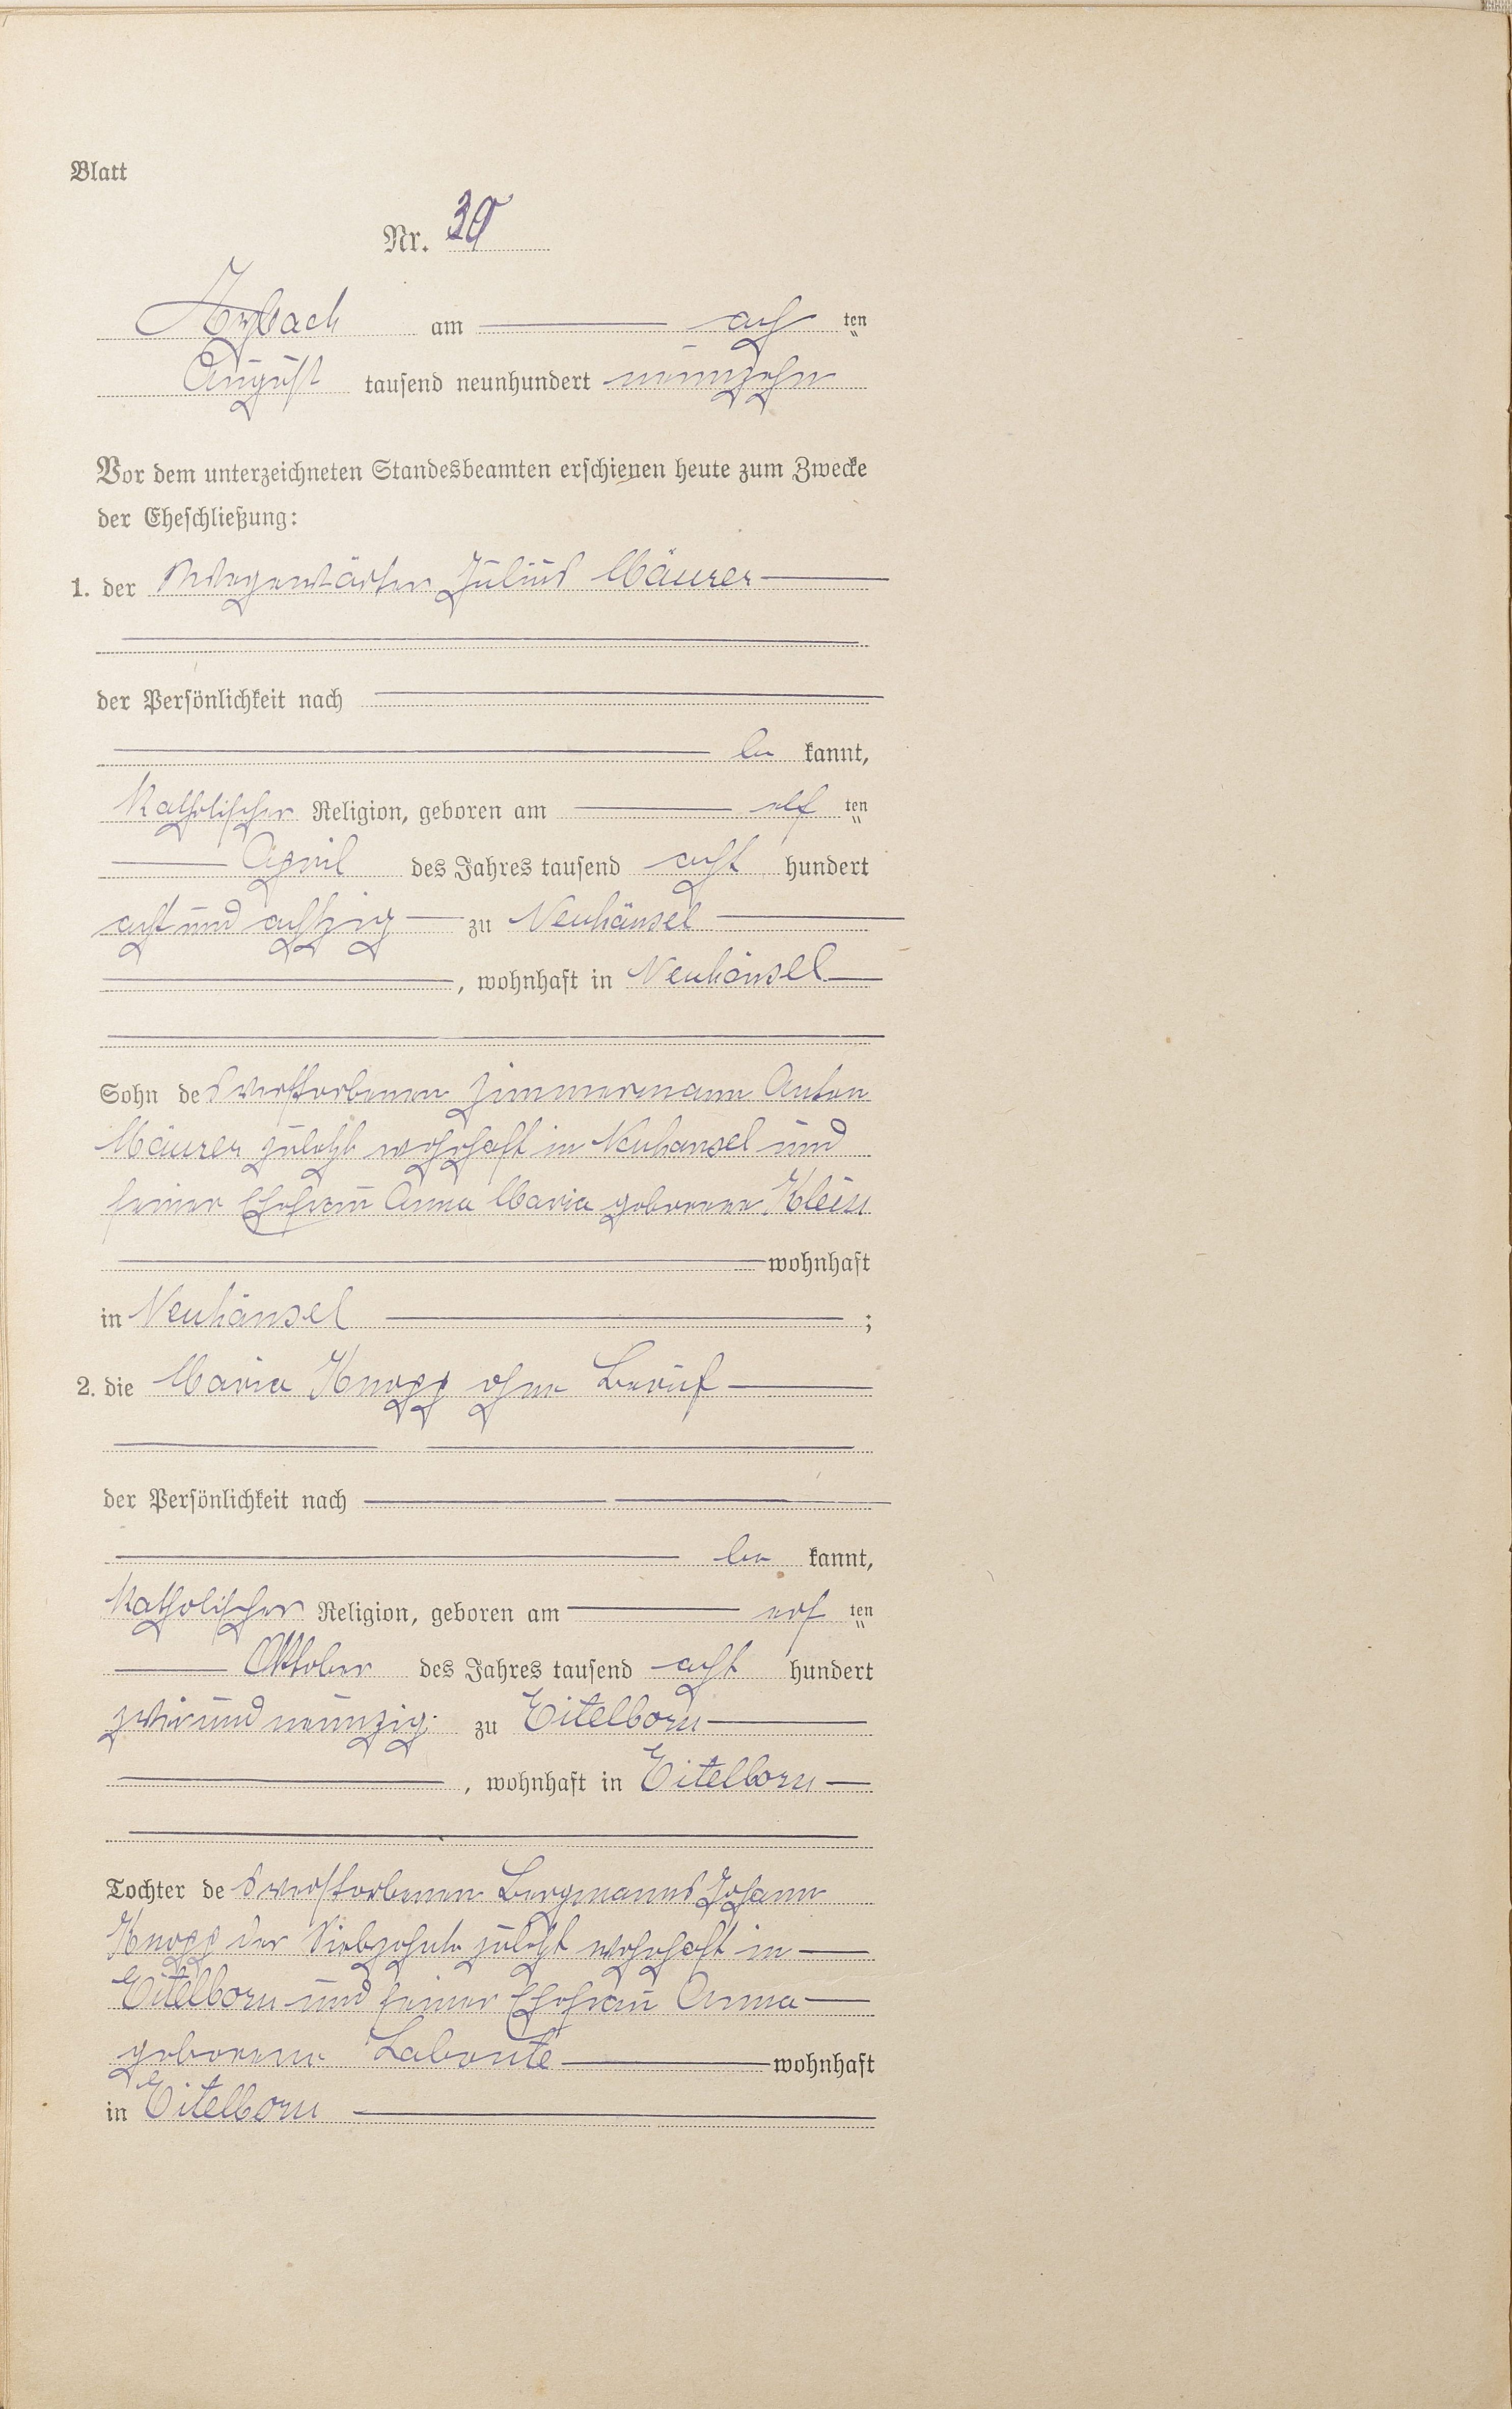 Blatt
Nr. 30
Arzbach am ach ten
August tausend neunhundert neunzehn
Vor dem unterzeichneten Standesbeamten erschienen heute zum Zwecke
der Eheschließung:
1. der Wegewärter Julius Mäurer
der Persönlichkeit nach
be kannt,
Katholischer Religion, geboren am elf ten
April des Jahres tausend acht hundert
acht und achtzig zu Neuhäusel
, wohnhaft in Neuhäusel
Sohn des verstorbenen Zimmermann Anton
Mäurer zuletzt wohnhaft in Neuhausel und
seiner Ehefrau Anna Maria geborene Klein
wohnhaft
in Neuhäusel ;
2. die Maria Knopp ohne Beruf
der Persönlichkeit nach
be kannt,
Katholischer Religion, geboren am ten
Oktober des Jahres tausend acht hundert
zwei und neunzig zu Eitelborn
, wohnhaft in Eitelborn
Tochter des verstorbenen Bergmanns Johann
Knopp der Siebzehnte zuletzt wohnhaft in
Eitelborn und seiner Ehefrau Anna
geborene Labonte wohnhaft
in Eitelborn